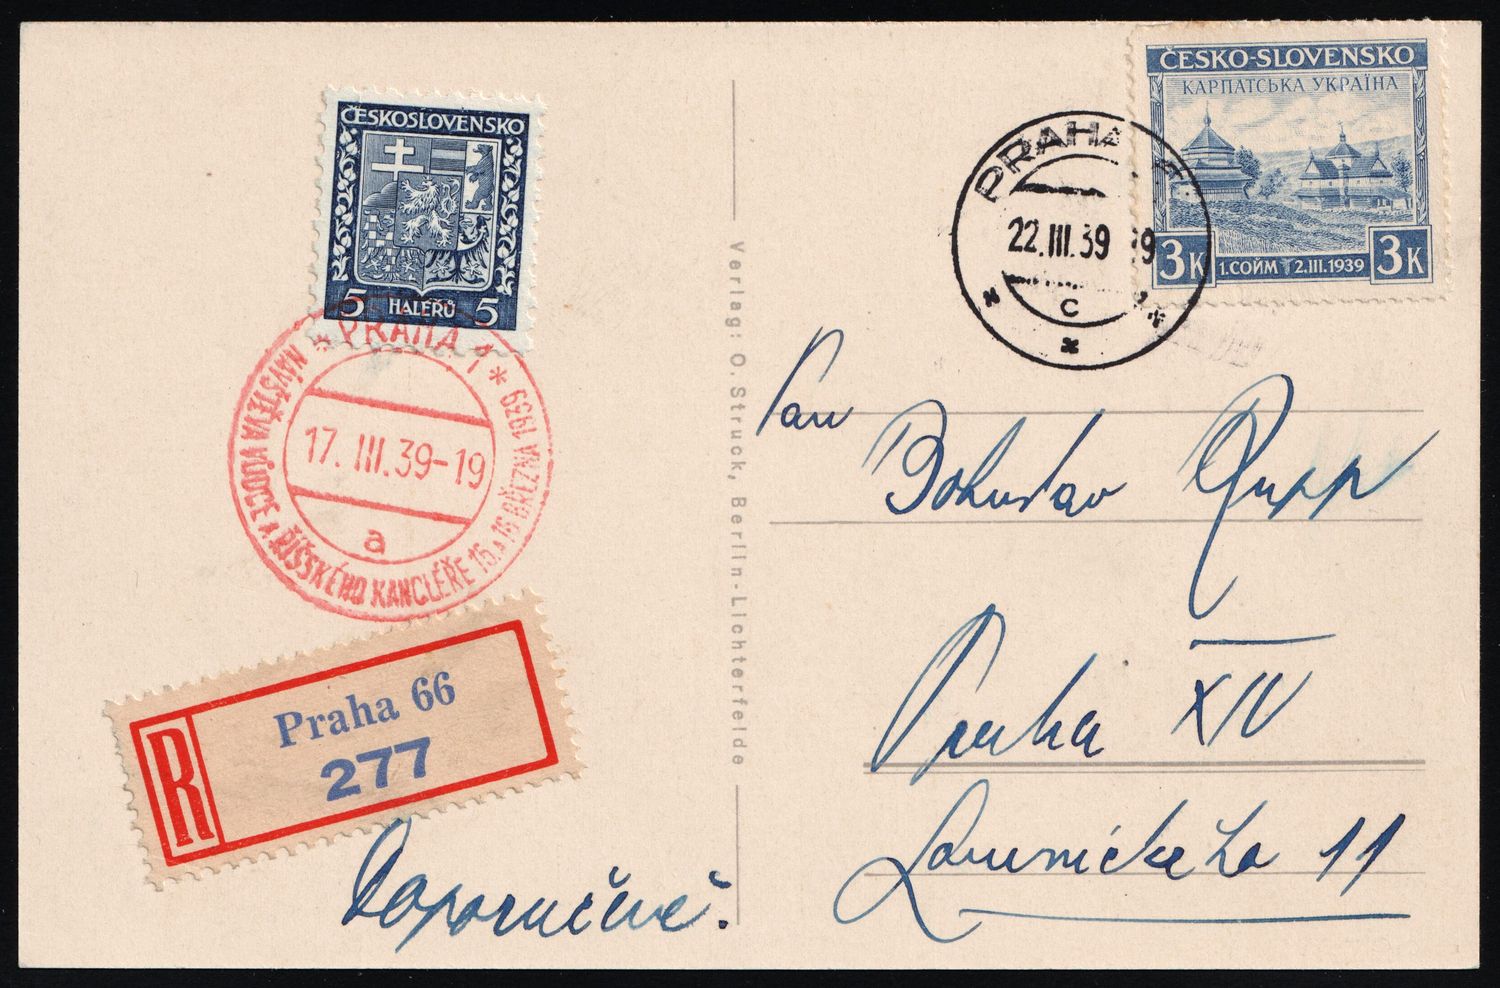 ČESKOSLOVENSKO
5 HALÉŘŮ 5
* PRAHA 1 *
NÁVŠTĚVA VŮDCE A ŘÍŠSKÉHO KANCLÉŘE 15. A 16 BŘEZNA 1939
17. III. 39-19
a
R
Praha 66
277
Doporučeně.
Verlag: O. Struck, Berlin-Lichterfelde
ČESKO-SLOVENSKO
КАРПАТСЬКА УКРАЇНА
3K 1. СОЙМ 2.III.1939 3K
PRAHA
22.III.39
C
Pan
Bohuslav Rupp
Praha XIV
11